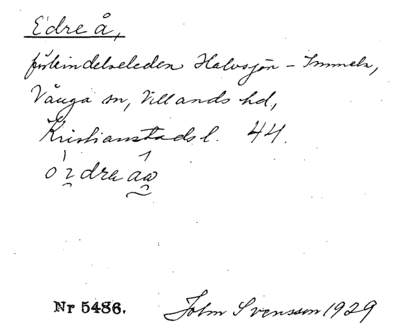 Edre å,
förbindelseleden Halvsjön - Immeln,
Vånga sn, Villands hd,
Kristianstads l. 44.
Nr 5486. John Svensson 1929